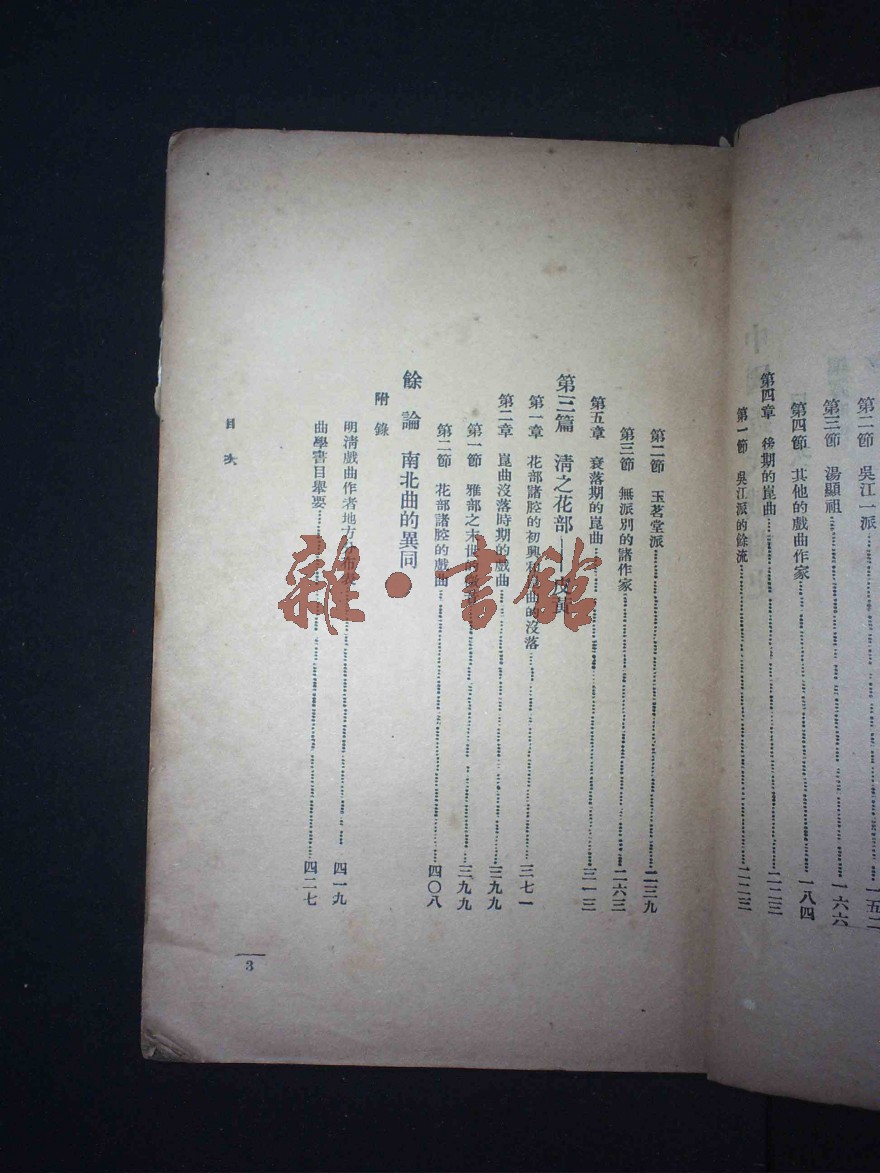 第二節 吳江一派 一五二
第三節 湯顯祖 一六六
第四節 其他的戲曲作家 一八四
第四章 後期的崑曲 二二三
第一節 吳江派的餘流 二二三
第二節 玉茗堂派 二三九
第三節 無派別的諸作家 二六三
第五章 衰落期的崑曲 三一三
第三篇 清之花部——皮黃
第一章 花部諸腔的初興和崑曲的沒落 三七一
第二章 崑曲沒落時期的戲曲 三九九
第一節 雅部之末世的 三九九
第二節 花部諸腔的戲曲 四〇八
餘論 南北曲的異同
附錄
明清戲曲作者地方分布表 四一九
曲學書目舉要 四二七
目次
3
雜·書館